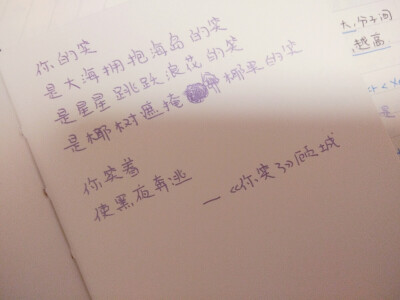 你的笑
是大海拥抱海岛的笑
是星星跳跃浪花的笑
是椰树遮掩椰果的笑
你笑着
使黑夜奔逃
—《你笑了》顾城
大,分子间
越高